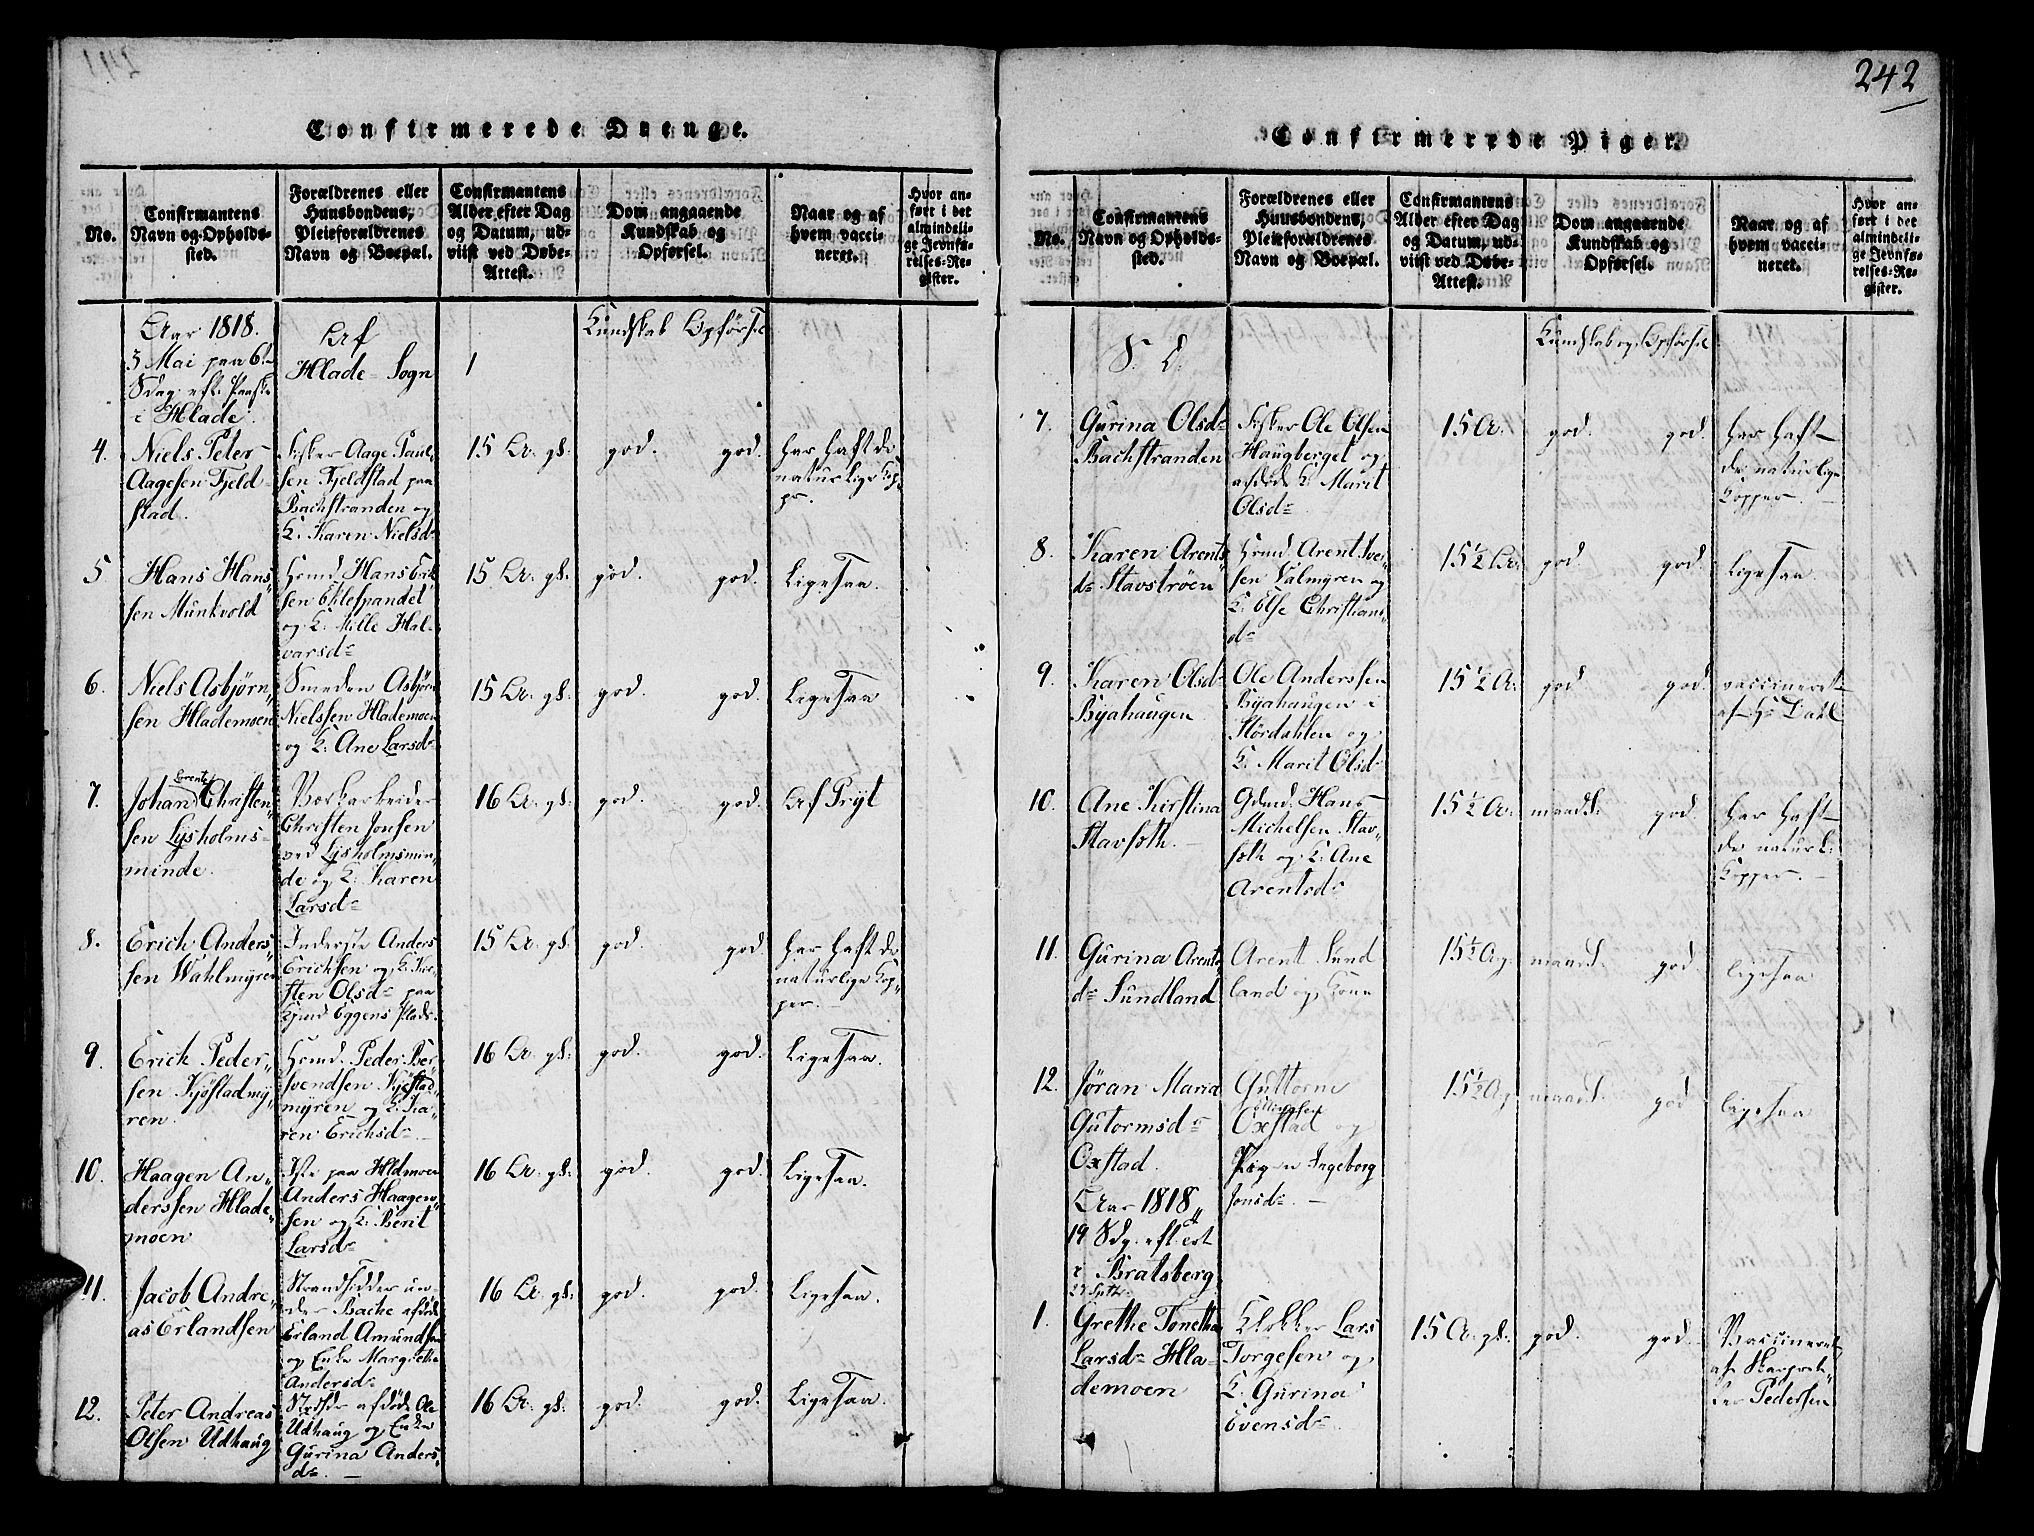 242
Confirmerede Drenge.
No.
Confirmantens
Navn og Opholds-
sted.
Forældrenes eller
Huusbondens,
Pleieforældrenes
Navn og Boepæl.
Confirmantens
Alder efter Dag
og Datum, ud-
viist ved Døbe-
Attest.
Dom angaaende
Kundskab og
Opførsel.
Naar og af
hvem vacci-
neret.
Hvor an-
ført i det
almindeli-
ge Jevnfø-
relses-Re-
gister.
Aar 1818.
3 Mai paa 6te
Sdag eft. Paaske
i Hlade.
Af
Hlade Sogn
Kundskab Opførsel
4.
Niels Peter
Aagesen Fjeld-
stad.
Fisker Aage Paul-
sen Fjeldstad paa
Bachstranden og
K. Karen Nielsdr
15 Ar. gl.
god. god.
har haft de
naturlige Kop-
per.
5
Hans Hans-
sen Munkvold
Hsmd. Hans Erik
sen Eklespandet
og K. Mille Hal-
varsdr
15 Ar. gl.
god. god.
Ligesaa.
6.
Niels Asbjørn-
sen Hlademoen
Smeden Asbjørn
Nielssen Hlademoen
og K. Ane Larsdr
15 Ar. gl.
god. god.
Ligesaa
7.
Johan Lorentz Christen-
sen Lysholms-
minde.
Christen Jonsen
ved Lysholmsmin-
de og K. Karen
Larsdr
16 Ar. gl.
god. god.
Af Pryt
8.
Erich Anders-
sen Wahlmyren
Inderste Anders
Erichsen og K. Kir-
sten Olsdr paa
Eggens Plads.
15 Ar. gl.
god. god
har haft de
naturlige Kop-
per.
9.
Erich Peder-
sen Kjøstadmy-
ren.
Hsmd. Peder Ber-
svendsen Kjøstad-
myren og K. Ka-
ren Erichsdr
16 Ar. gl.
god. god.
Ligesaa.
10.
Haagen An-
derssen Hlade-
moen
paa Hldmoen
Anders Haagen-
sen og K. Berit
Larsdr
16 Ar. gl.
god. god.
Ligesaa.
11.
Jacob Andre-
as Erlandsen
Strandsidder un-
der Bache afdøde
Erland Amundsen
og Enke Margrethe
Andersdr
16 Ar. gl.
god. god.
Ligesaa.
12.
Peter Andreas
Olsen Udhaug
afdøde Ole
Udhaug og Enke
Gurina Anders-
dr
16 Ar. gl.
god. god.
Ligesaa.
Confirmerede Piger.
No.
Confirmantens
Navn og Opholds-
sted.
Forældrenes eller
Huusbondens,
Pleieforældrenes
Navn og Boepæl.
Confirmantens
Alder efter Dag
og Datum, ud-
viist ved Døbe-
Attest.
Dom angaaende
Kundskab og
Opførsel.
Naar og af
hvem vacci-
neret.
Hvor an-
ført i det
almindeli-
ge Jevnfø-
relses-Re-
gister.
S. D.
Kundskab og Opførsel
7.
Gurina Olsdr
Bachstranden
Fisker Ole Olsen
Haugberget og
afdøde K. Marit
Olsdr
15 A.
god. god.
har haft
de naturlige
Kopper.
8.
Karen Arents-
dr Stavstrøen
Hsmd. Arent Sve-
sen Valmyren og
K. Else Christians-
dr
15½ Ar.
god god.
Ligesaa.
9.
Karen Olsdr
Byahaugen
Ole Anderssen
Byahaugen i
Størdahlen og
K. Marit Olsdr
15½ A.
god god.
vaccineret
af Hr Dahl
10.
Ane Kirstina
Stavseth.
Gdmd. Hans
Michelsen Stav-
seth og K. Ane
Arentsdr
15½ A.
maadl. god.
har haft
de naturl.
Kopper.
11.
Gurina Arents-
dr Sundland
Arent Sund
land og Kone
15½ A.
maadl. god.
ligesaa
12.
Jøran Maria
Gutormsdr
Oxstad.
Guttorm
Ellingsen
Oxstad og
Pigen Ingeborg
Jonsdr
15½ A.
maadl. god
ligesaa
Aar 1818
19 Sdg. eft. Trt
i Bratsberg
27 Sptbr.
1.
Grethe Tonetha
Larsdr Hla-
demoen
Klokker Lars
Torgersen og
K. Gurina
Evensdr
15 A. gl.
god. god.
Vaccineret
af Skarpret-
ter Pedersen